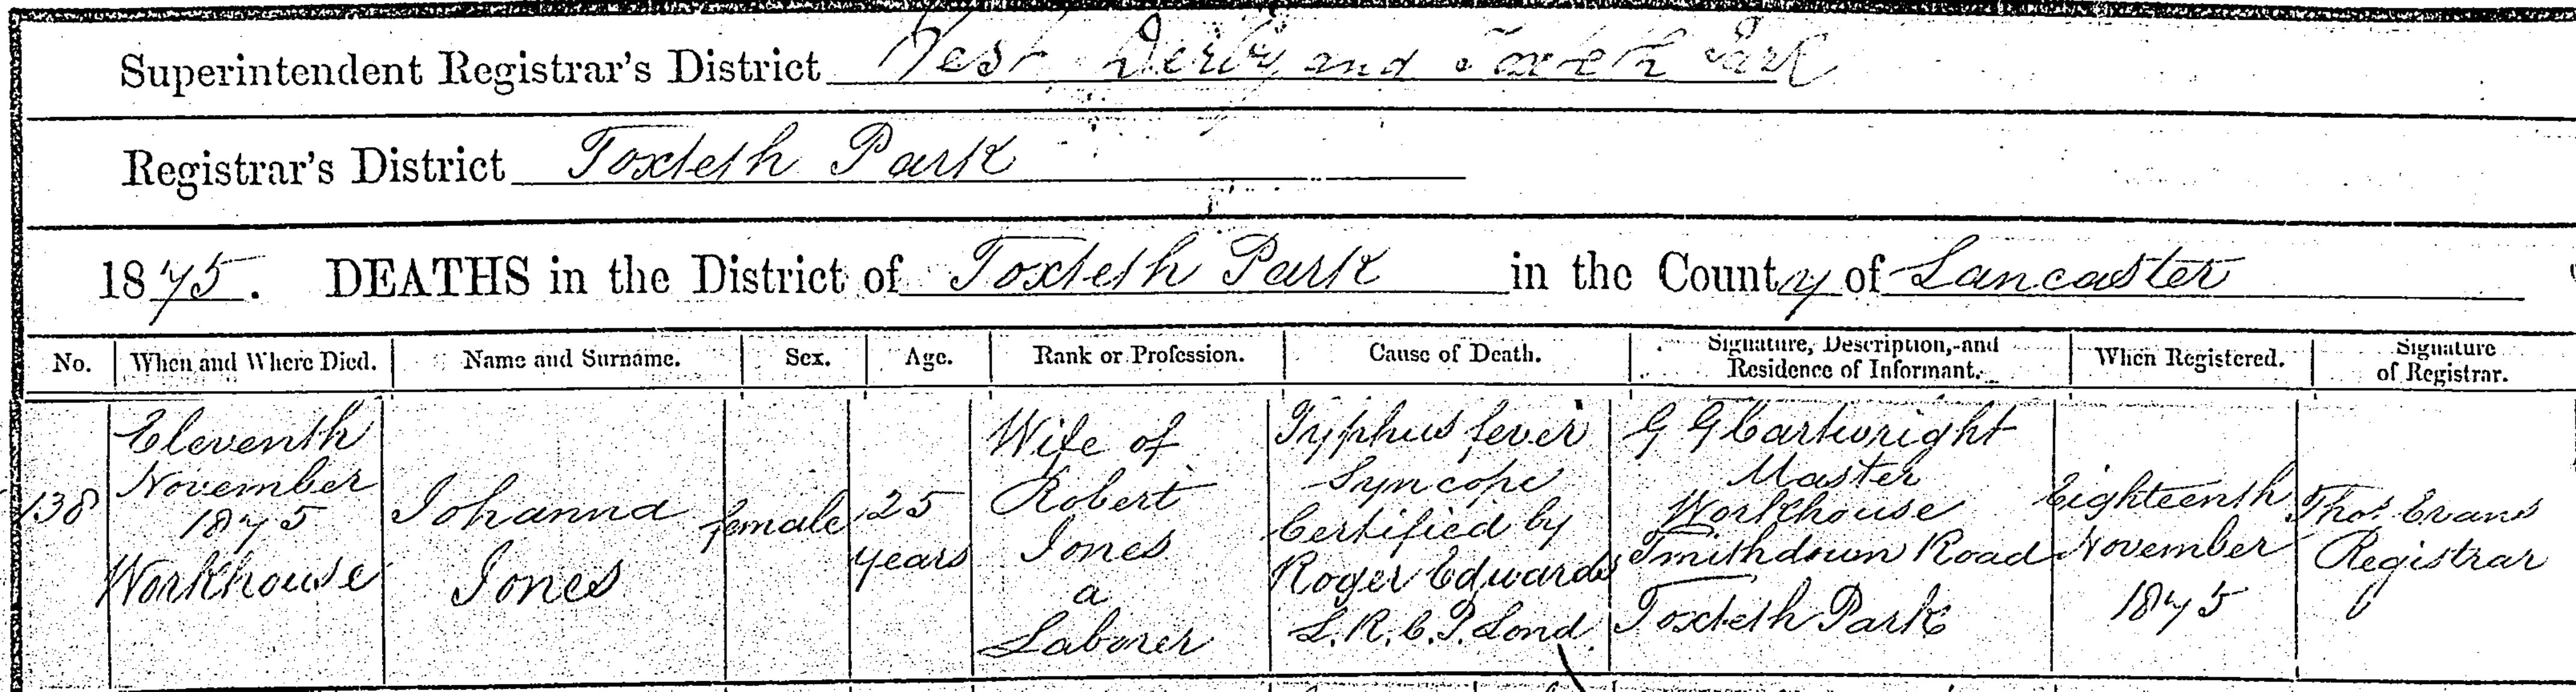 Superintendent Registrar's District West Derby and Toxteth Park
Registrar's District Toxteth Park
1875. DEATHS in the District of Toxteth Park in the County of Lancaster
No. When and Where Died. Name and Surname. Sex. Age. Rank or Profession. Cause of Death. Signature, Description, and Residence of Informant. When Registered. Signature of Registrar.
138
Eleventh
November
1875
Workhouse
Johanna
Jones
female
25
years
Wife of
Robert
Jones
a
Laborer
Typhus fever
Syncope
Certified by
Roger Edwards
L.R.C.P. Lond
G G Cartwright
Master
Workhouse
Smithdown Road
Toxteth Park
Eighteenth
November
1875
Thos. Evans
Registrar